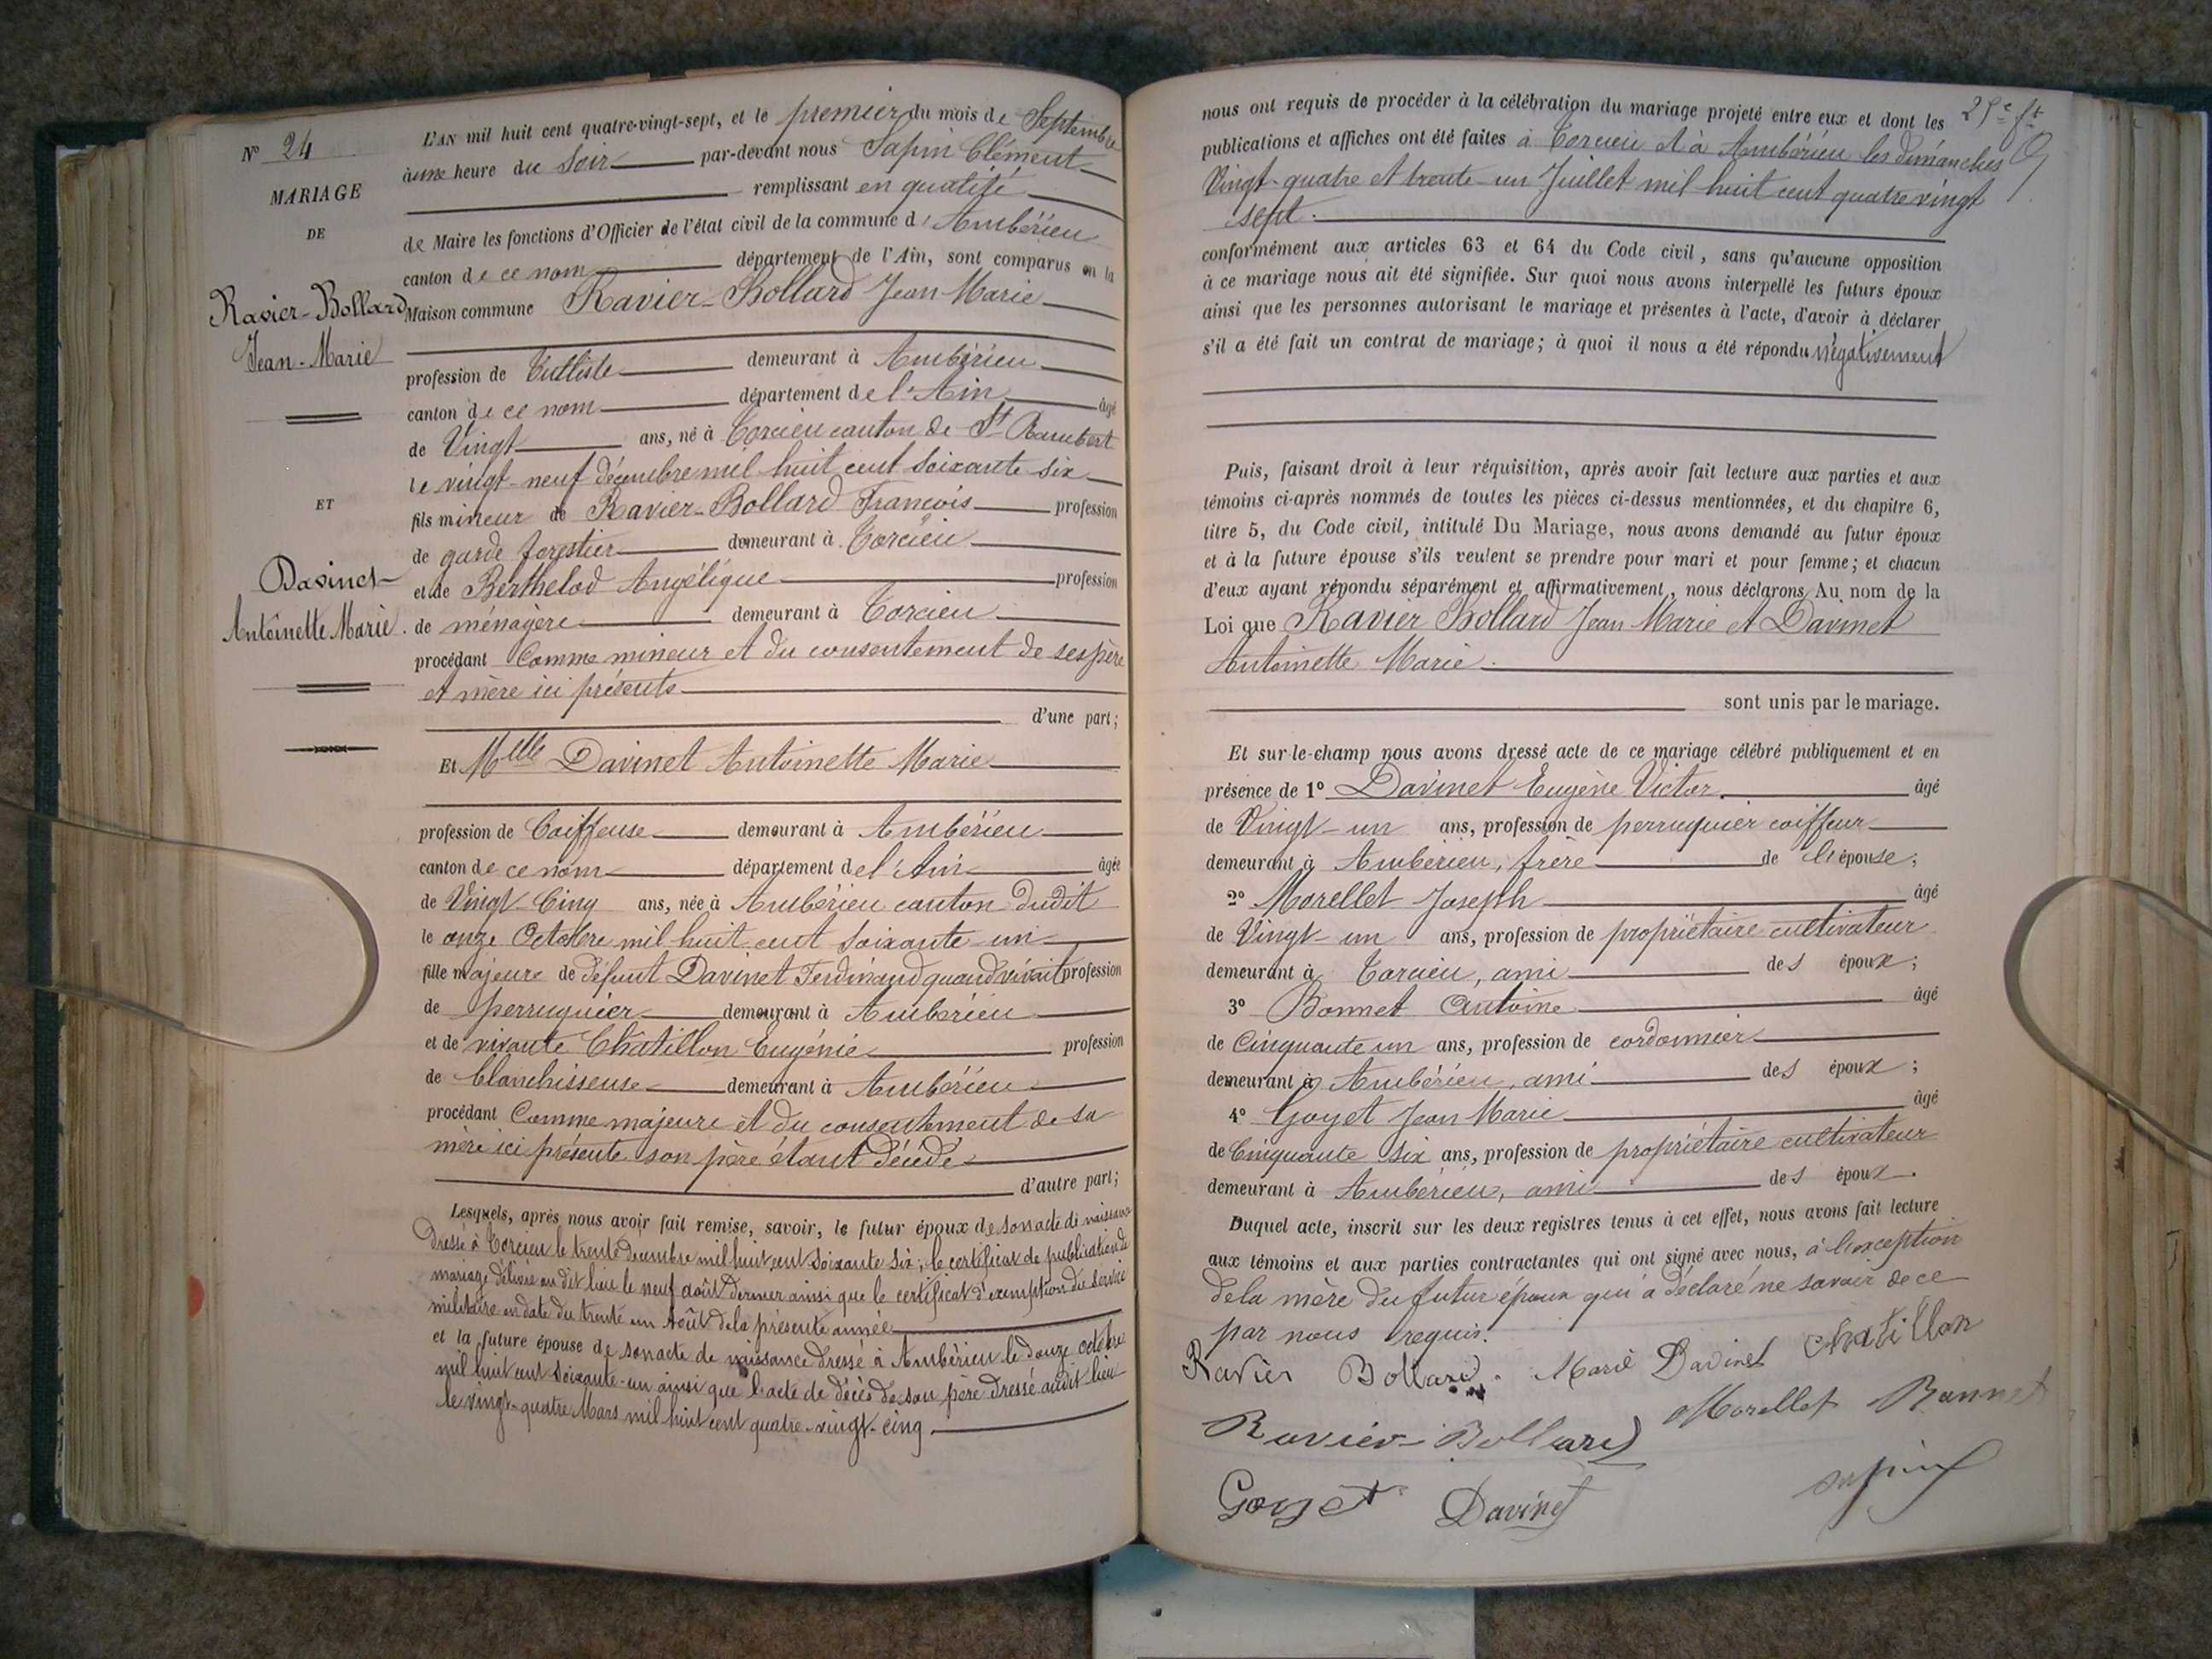 Nº 24
MARIAGE
DE
Ravier-Bollard
Jean-Marie
ET
Davinet
Antoinette Marie.
L'AN mil huit cent quatre-vingt-sept, et le premier du mois de Septembre
à une heure du Soir par-devant nous Sapin Clément
remplissant en qualité
de Maire les fonctions d'Officier de l'état civil de la commune d'Ambérieu
canton de ce nom département de l'Ain, sont comparus en la
Maison commune Ravier-Bollard Jean Marie
profession de Tulliste demeurant à Ambérieu
canton de ce nom département de l'Ain âgé
de Vingt ans, né à Torcieu canton de St Rambert
le vingt-neuf décembre mil huit cent soixante six
fils mineur de Ravier-Bollard François profession
de garde forestier demeurant à Torcieu
et de Berthelod Angélique profession
de ménagère demeurant à Torcieu
procédant Comme mineur et du consentement de ses père
et mère ici présents
d'une part;
Et Melle Davinet Antoinette Marie
profession de Coiffeuse demeurant à Ambérieu
canton de ce nom département de l'Ain âgée
de Vingt-Cinq ans, née à Ambérieu canton dudit
le onze Octobre mil huit cent soixante-un
fille majeure de défunt Davinet Ferdinand quand vivait profession
de perruquier demeurant à Ambérieu
et de vivante Châtillon Eugénie profession
de blanchisseuse demeurant à Ambérieu
procédant Comme majeure et du consentement de sa
mère ici présente son père étant décédé
d'autre part;
Lesquels, après nous avoir fait remise, savoir, le futur époux de son acte de naissance
dressé à Torcieu le trente décembre mil huit cent soixante six; le certificat de publication de
mariage délivré au dit lieu le neuf août dernier ainsi que le certificat d'exemption du service
militaire en date du trente un Août de la présente année
et la future épouse de son acte de naissance dressé à Ambérieu le douze octobre
mil huit cent soixante-un ainsi que l'acte de décès de son père dressé audit lieu
le vingt-quatre Mars mil huit cent quatre-vingt-cinq.
nous ont requis de procéder à la célébration du mariage projeté entre eux et dont les
publications et affiches ont été faites à Torcieu et à Ambérieu les dimanches
Vingt-quatre et trente-un Juillet mil huit cent quatre vingt
sept.
conformément aux articles 63 et 64 du Code civil, sans qu'aucune opposition
à ce mariage nous ait été signifiée. Sur quoi nous avons interpellé les futurs époux
ainsi que les personnes autorisant le mariage et présentes à l'acte, d'avoir à déclarer
s'il a été fait un contrat de mariage; à quoi il nous a été répondu négativement
Puis, faisant droit à leur réquisition, après avoir fait lecture aux parties et aux
témoins ci-après nommés de toutes les pièces ci-dessus mentionnées, et du chapitre 6,
titre 5, du Code civil, intitulé Du Mariage, nous avons demandé au futur époux
et à la future épouse s'ils veulent se prendre pour mari et pour femme; et chacun
d'eux ayant répondu séparément et affirmativement, nous déclarons Au nom de la
Loi que Ravier Bollard Jean Marie et Davinet
Antoinette Marie.
sont unis par le mariage.
Et sur-le-champ nous avons dressé acte de ce mariage célébré publiquement et en
présence de 1º Davinet Eugène Victor. âgé
de Vingt-un ans, profession de perruquier coiffeur
demeurant à Ambérieu, frère de l'épouse;
2º Morellet Joseph âgé
de Vingt-un ans, profession de propriétaire cultivateur
demeurant à Torcieu, ami des époux;
3º Bonnet Antoine âgé
de Cinquante un ans, profession de cordonnier
demeurant à Ambérieu, ami des époux;
4º Goyet Jean Marie âgé
de Cinquante six ans, profession de propriétaire cultivateur
demeurant à Ambérieu, ami des époux.
Duquel acte, inscrit sur les deux registres tenus à cet effet, nous avons fait lecture
aux témoins et aux parties contractantes qui ont signé avec nous, à l'exception
de la mère du futur époux qui a déclaré ne savoir de ce
par nous requis.
Ravier Bollard. Marie Davinet Chatillon
Ravier-Bollard Morellet Bonnet
Goyet Davinet Sapin